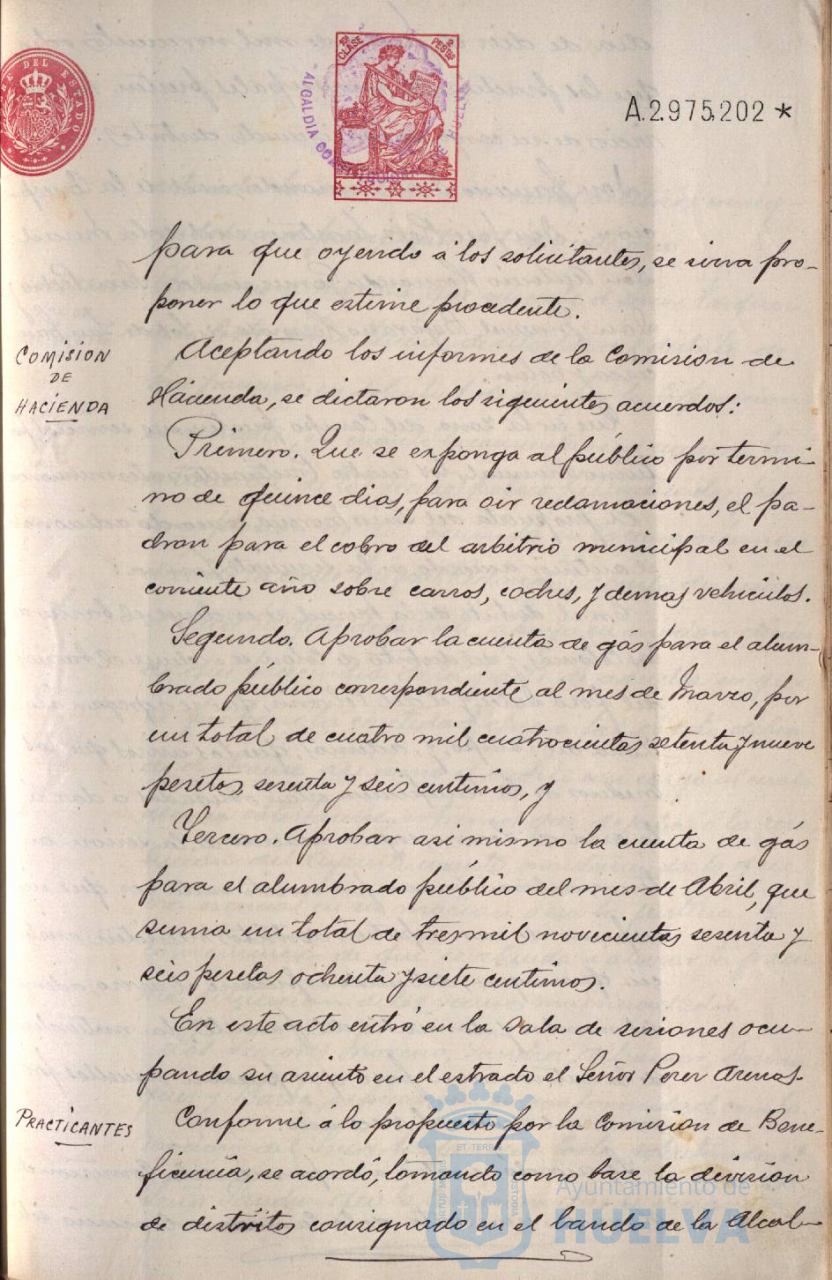 TIMBRE DEL ESTADO
10ª CLASE
2 PESETAS
ALCALDIA CONSTITUCIONAL DE HUELVA
A.2.975.202 *
para que oyendo á los solicitantes, se sirva pro-
poner lo que estime procedente.
COMISION
DE
HACIENDA
Aceptando los informes de la Comision de
Hacienda, se dictaron los siguientes acuerdos:
Primero. Que se exponga al público por termi-
no de quince dias, para oir reclamaciones, el pa-
dron para el cobro del arbitrio municipal en el
corriente año sobre carros, coches, y demas vehiculos.
Segundo. Aprobar la cuenta de gás para el alum-
brado público correspondiente al mes de Marzo, por
un total de cuatro mil cuatrocientas setenta y nueve
pesetas, sesenta y seis centimos, y
Tercero. Aprobar asi mismo la cuenta de gás
para el alumbrado público del mes de Abril, que
suma un total de tres mil novecientas sesenta y
seis pesetas ochenta y siete centimos.
En este acto entró en la sala de sesiones ocu-
pando su asiento en el estrado el Señor Perez Arenas.
PRACTICANTES
Conforme á lo propuesto por la Comision de Bene-
ficencia, se acordó, tomando como base la division
de distritos consignado en el bando de la Alcal-
Ayuntamiento de
HUELVA